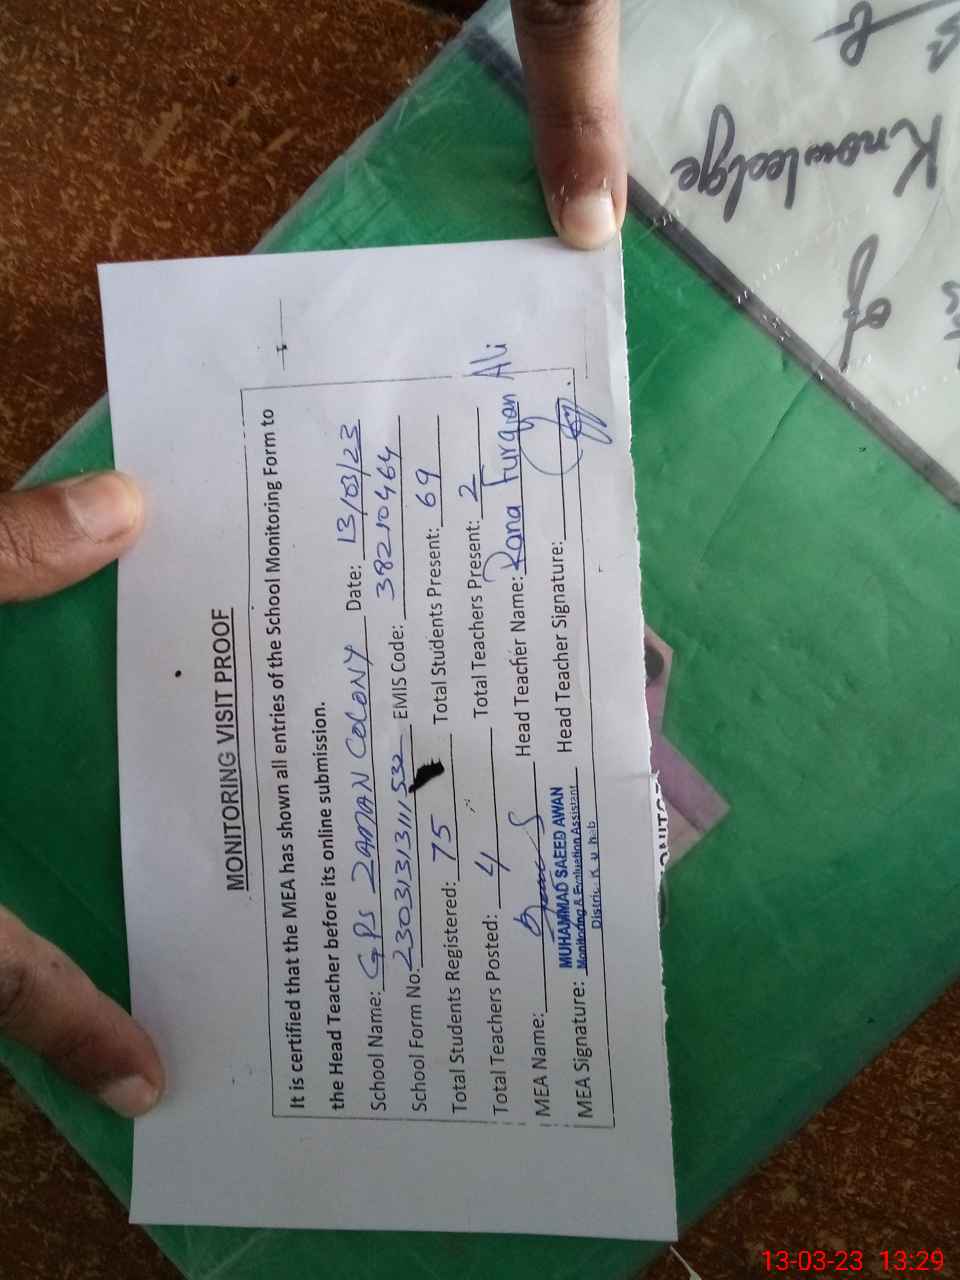 MONITORING VISIT PROOF
It is certified that the MEA has shown all entries of the School Monitoring Form to
the Head Teacher before its online submission.
School Name: GPS ZAMAN COLONY Date: 13/03/23
School Form No: 230313111532 EMIS Code: 38210464
Total Students Registered: 75 Total Students Present: 69
Total Teachers Posted: 4 Total Teachers Present: 2
MEA Name: Head Teacher Name: Rana Furqan Ali
MUHAMMAD SAEED AWAN
Monitoring & Evaluation Assistant
MEA Signature: Head Teacher Signature:
District
Knowledge
of
13-03-23 13:29